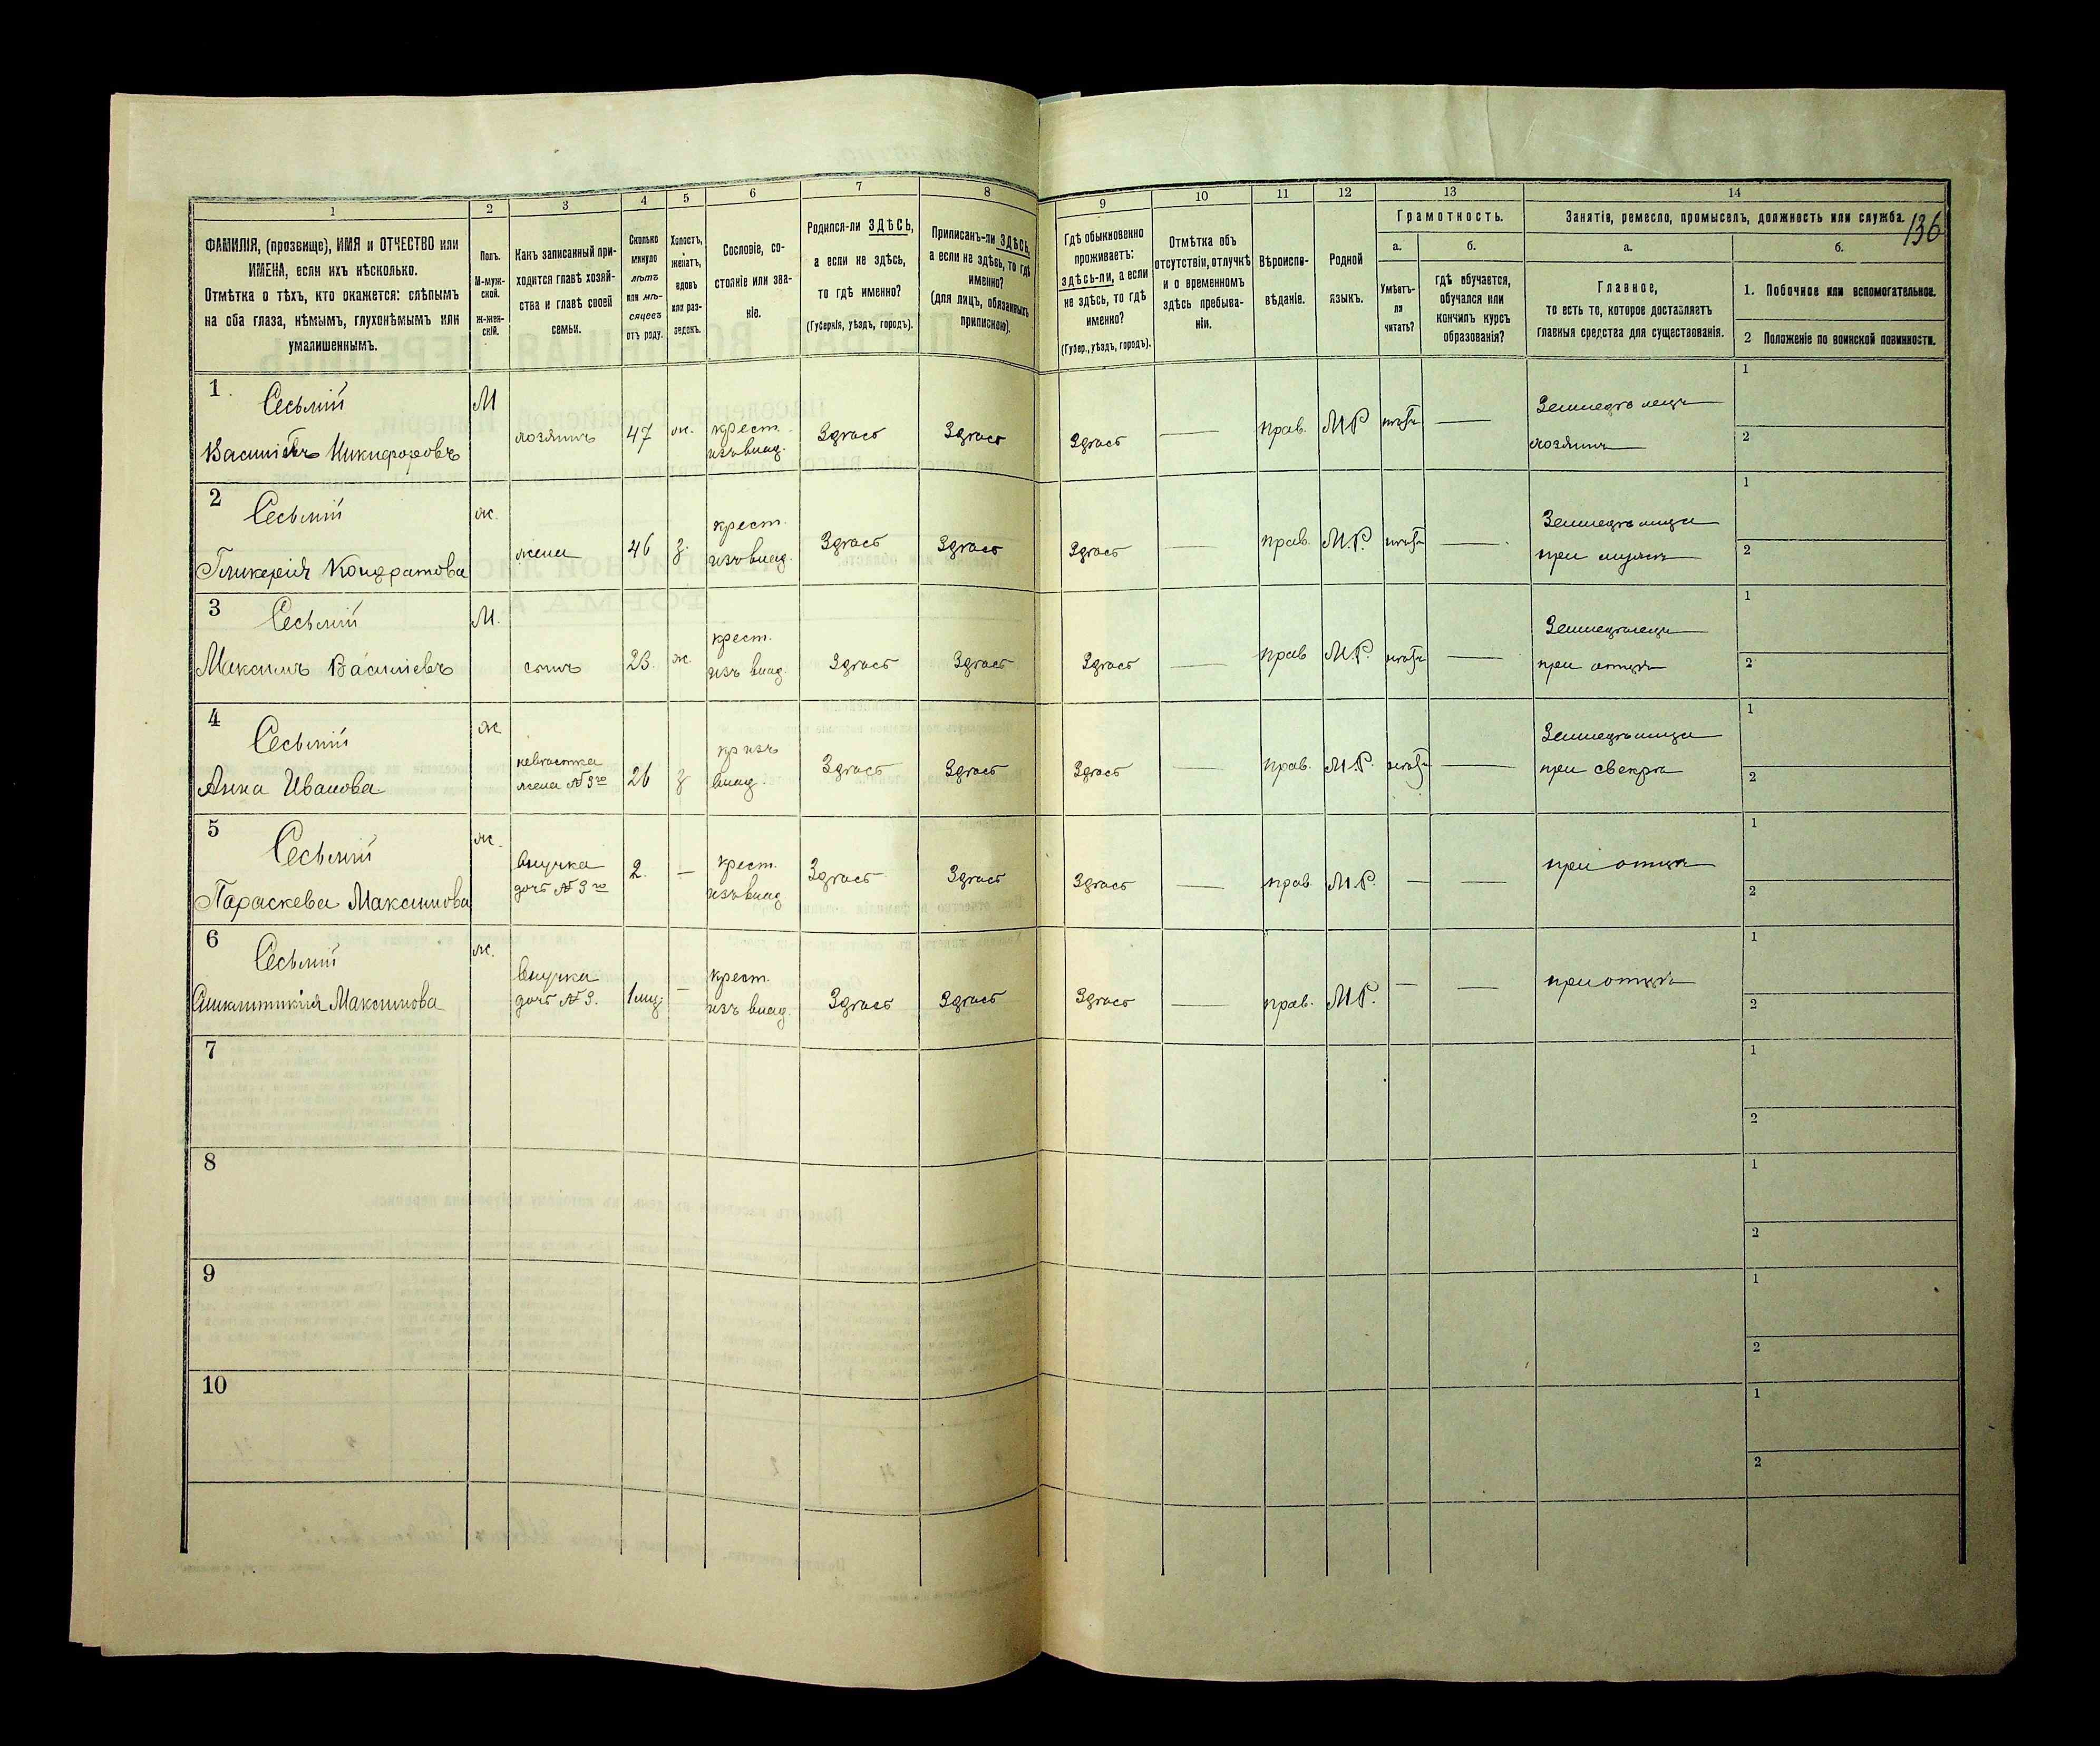 136
1 2 3 4 5 6 7 8 9 10 11 12 13 14
ФАМИЛІЯ, (прозвище), ИМЯ и ОТЧЕСТВО или
ИМЕНА, если ихъ нѣсколько.
Отмѣтка о тѣхъ, кто окажется: слѣпымъ
на оба глаза, нѣмымъ, глухонѣмымъ или
умалишеннымъ.
Полъ.
М-муж-
ской.
Ж-жен-
скій.
Какъ записанный при-
ходится главѣ хозяй-
ства и главѣ своей
семьи.
Сколько
минуло
лѣтъ
или мѣ-
сяцевъ
отъ роду.
Холостъ,
женатъ,
вдовъ
или раз-
веденъ.
Сословіе, со-
стояніе или зва-
ніе.
Родился-ли ЗДѢСЬ,
а если не здѣсь,
то гдѣ именно?
(Губернія, уѣздъ, городъ).
Приписанъ-ли ЗДѢСЬ,
а если не здѣсь, то гдѣ
именно?
(для лицъ, обязанныхъ
припискою).
Гдѣ обыкновенно
проживаетъ:
здѣсь-ли, а если
не здѣсь, то гдѣ
именно?
(Губер., уѣздъ, городъ).
Отмѣтка объ
отсутствіи, отлучкѣ
и о временномъ
здѣсь пребыва-
ніи.
Вѣроиспо-
вѣданіе.
Родной
языкъ.
Грамотность.
а.
Умѣетъ-
ли
читать?
б.
гдѣ обучается,
обучался или
кончилъ курсъ
образованія?
Занятіе, ремесло, промыселъ, должность или служба.
а.
Главное,
то есть то, которое доставляетъ
главныя средства для существованія.
б.
1. Побочное или вспомогательное.
2 Положеніе по воинской повинности.
1. М Земледѣлецъ 1
Василіевъ Никифоровъ хозяинъ 47 ж. крест. Здѣсь Здѣсь Здѣсь — прав. М.Р. — хозяинъ 2
изъ влад.
2 ж. Земледѣлица 1
Гликерія Кондратова жена 46 з. крест. Здѣсь Здѣсь Здѣсь — прав. М.Р. — при мужѣ 2
изъ влад.
3 М. Земледѣлецъ 1
Максимъ Василіевъ сынъ 23. ж. крест. Здѣсь Здѣсь Здѣсь — прав М.Р. — при отцѣ 2
изъ влад.
4 ж Земледѣлица 1
невѣстка кр изъ
Анна Иванова жена №3го 26 з влад. Здѣсь Здѣсь Здѣсь — прав. М.Р. — при свекрѣ 2
5 ж. 1
внучка крест. при отцѣ
Параскева Максимова дочь №3го 2. — изъ влад Здѣсь Здѣсь Здѣсь — прав. М.Р. — — 2
6 ж. 1
Внучка крест. при отцѣ
Максимова дочь №3. — изъ влад. Здѣсь Здѣсь Здѣсь — прав. М.Р. — — 2
7 1
2
8 1
2
9 1
2
10 1
2